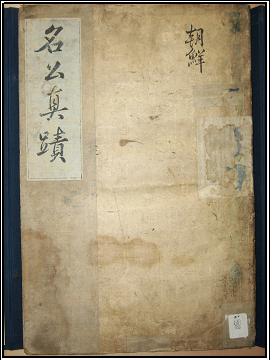 朝鮮
名公真蹟